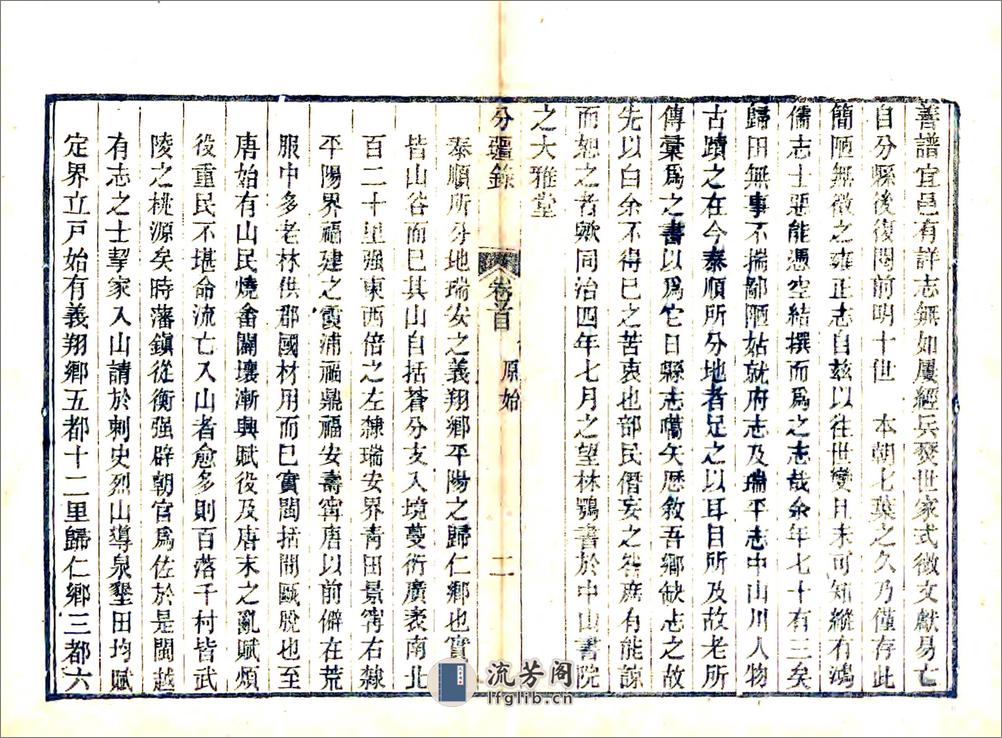 善譜宜邑有詳志無如屢經兵燹世家式微文獻易亡
自分縣後復閱前明十世　本朝七葉之久乃僅存此
簡陋無徵之雍正志自茲以往世變日未可知縱有鴻
儒志士惡能憑空結撰而爲之志哉余年七十有三矣
歸田無事不揣鄙陋姑就府志及瑞平志中山川人物
古蹟之在今泰順所分地者足之以耳目所及故老所
傳彙爲之書以爲它日縣志嚆矢歷敘吾鄉缺志之故
先以白余不得已之苦衷也部民僭妄之咎庶有能諒
而恕之者歟同治四年七月之望林鶚書於中山書院
之大雅堂
分疆錄
卷首
原始
二
泰順所分地瑞安之義翔鄉平陽之歸仁鄉也實
皆山谷而已其山自括蒼分支入境蔓衍廣袤南北
百二十里强東西倍之左隸瑞安界靑田景甯右隸
平陽界福建之霞浦鼎福安壽甯唐以前僻在荒
服中多老林供郡國材用而已實閩括閒甌脫也至
唐始有山民燒畬闢壤漸興賦役及唐末之亂賦煩
役重民不堪命流亡入山者愈多則百落千村皆武
陵之桃源矣時藩鎭從衡强辟朝官爲佐於是閩越
有志之士挈家入山請於刺史烈山導泉墾田均賦
定界立戸始有義翔鄉五都十二里歸仁鄉三都六
流芳阁
lfglib.cn